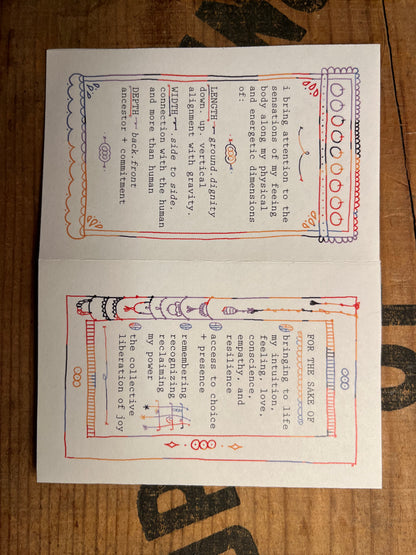 i bring attention to the
sensations of my feeing
body along my physical
and energetic dimensions
of:
LENGTH ground.dignity
down. up. vertical
alignment with gravity.
WIDTH side to side.
connection with the human
and more than human
DEPTH back.front
ancestor + commitment
FOR THE SAKE OF
bringing to life
my intuition,
feeling, love,
conscience,
empathy, and
resilience
access to choice
+ presence
remembering
recognizing
reclaiming
my power
the collective
liberation of joy